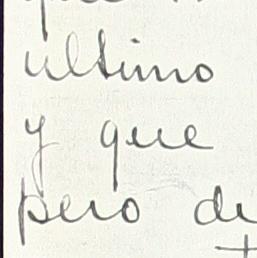 ultimo
y que
pero de